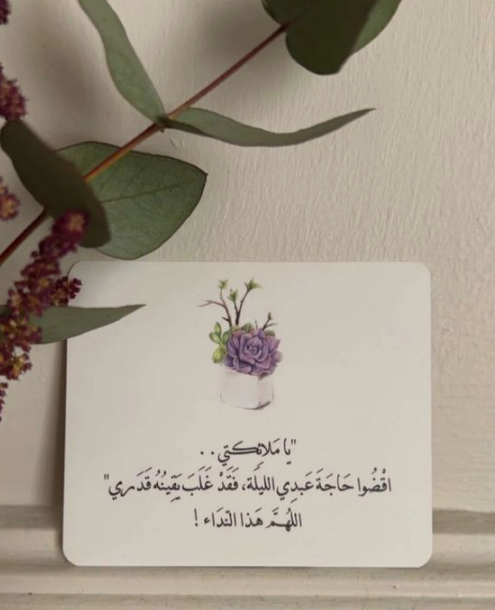 "يَا مَلَائِكَتِي..
اقْضُوا حَاجَةَ عَبدِي الليلَة، فَقَدْ غَلَبَ يَقِينُهُ قَدَرِي"
اللهُمَّ هَذا النّدَاء !